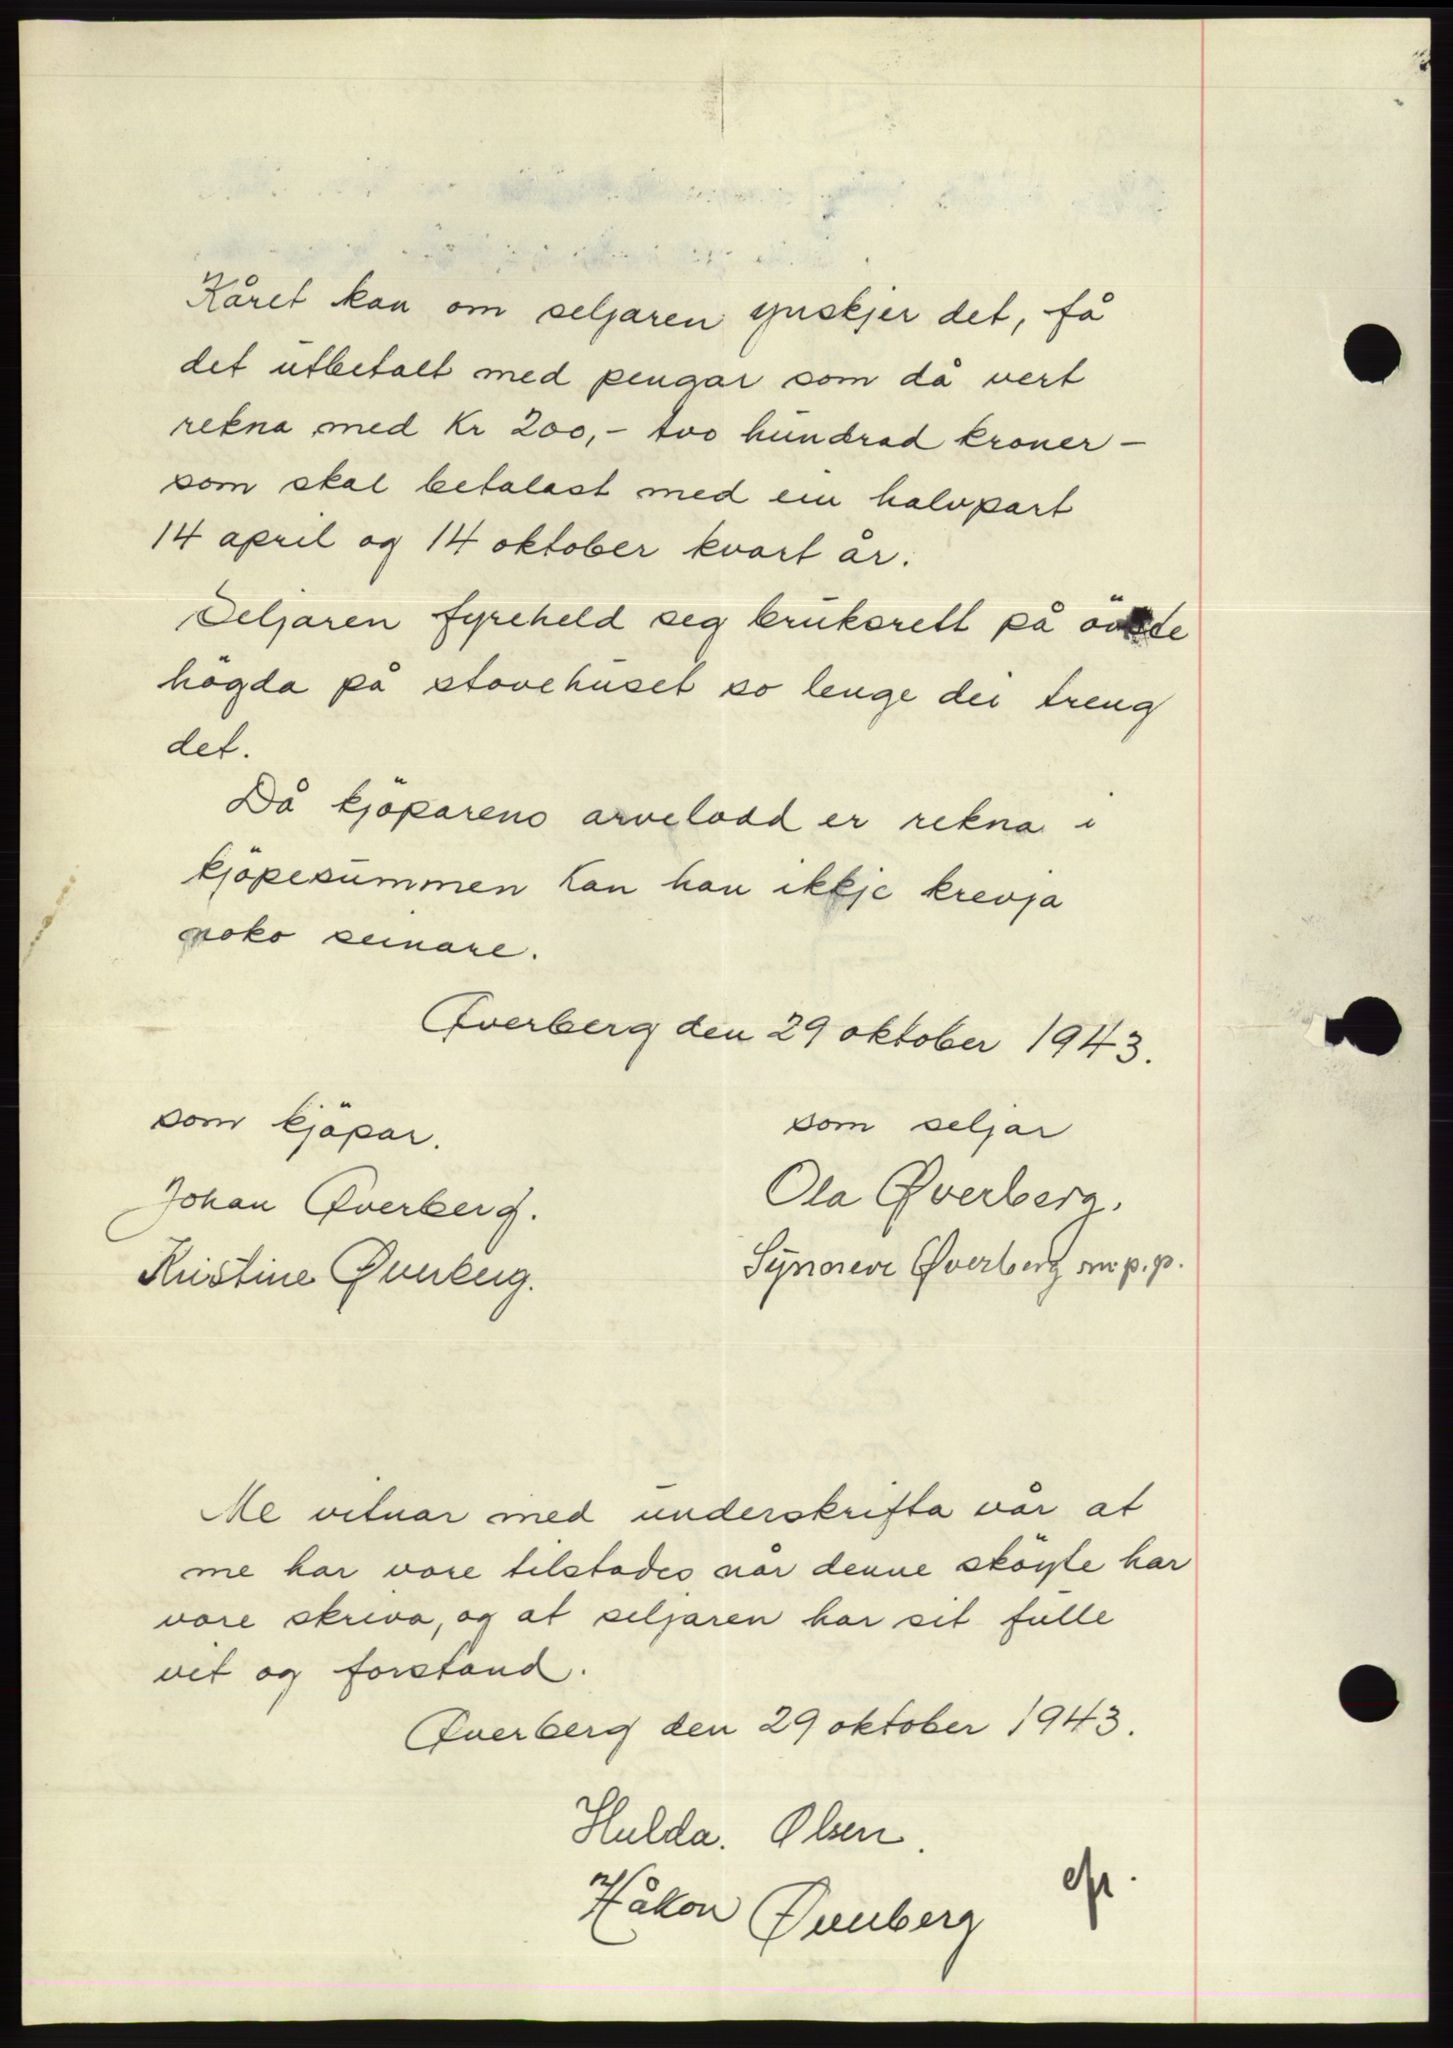 Kåret kan om seljaren ynskjer det, få
det utbetalt med pengar som då vert
rekna med Kr 200,- tvo hundrad kroner -
som skal betalast med ein halvpart
14 april og 14 oktober kvart år.
Seljaren fyreheld seg bruksrett på
högda på stovehuset so lenge dei treng
det.
Då kjöparens arvelodd er rekna i
kjöpesummen kan han ikkje krevja
noko seinare.
Øverberg den 29 oktober 1943.
som kjöpar. som seljar
Johan Øverberg. Ola Øverberg.
Kristine Øverberg. Synneve Øverberg m.p.p.
Me vitnar med underskrifta vår at
me har vore tilstades når denne sköyte har
vore skriva, og at seljaren har sit fulle
vit og forstand.
Øverberg den 29 oktober 1943.
Hulda. Olsen.
Håkon Øverberg